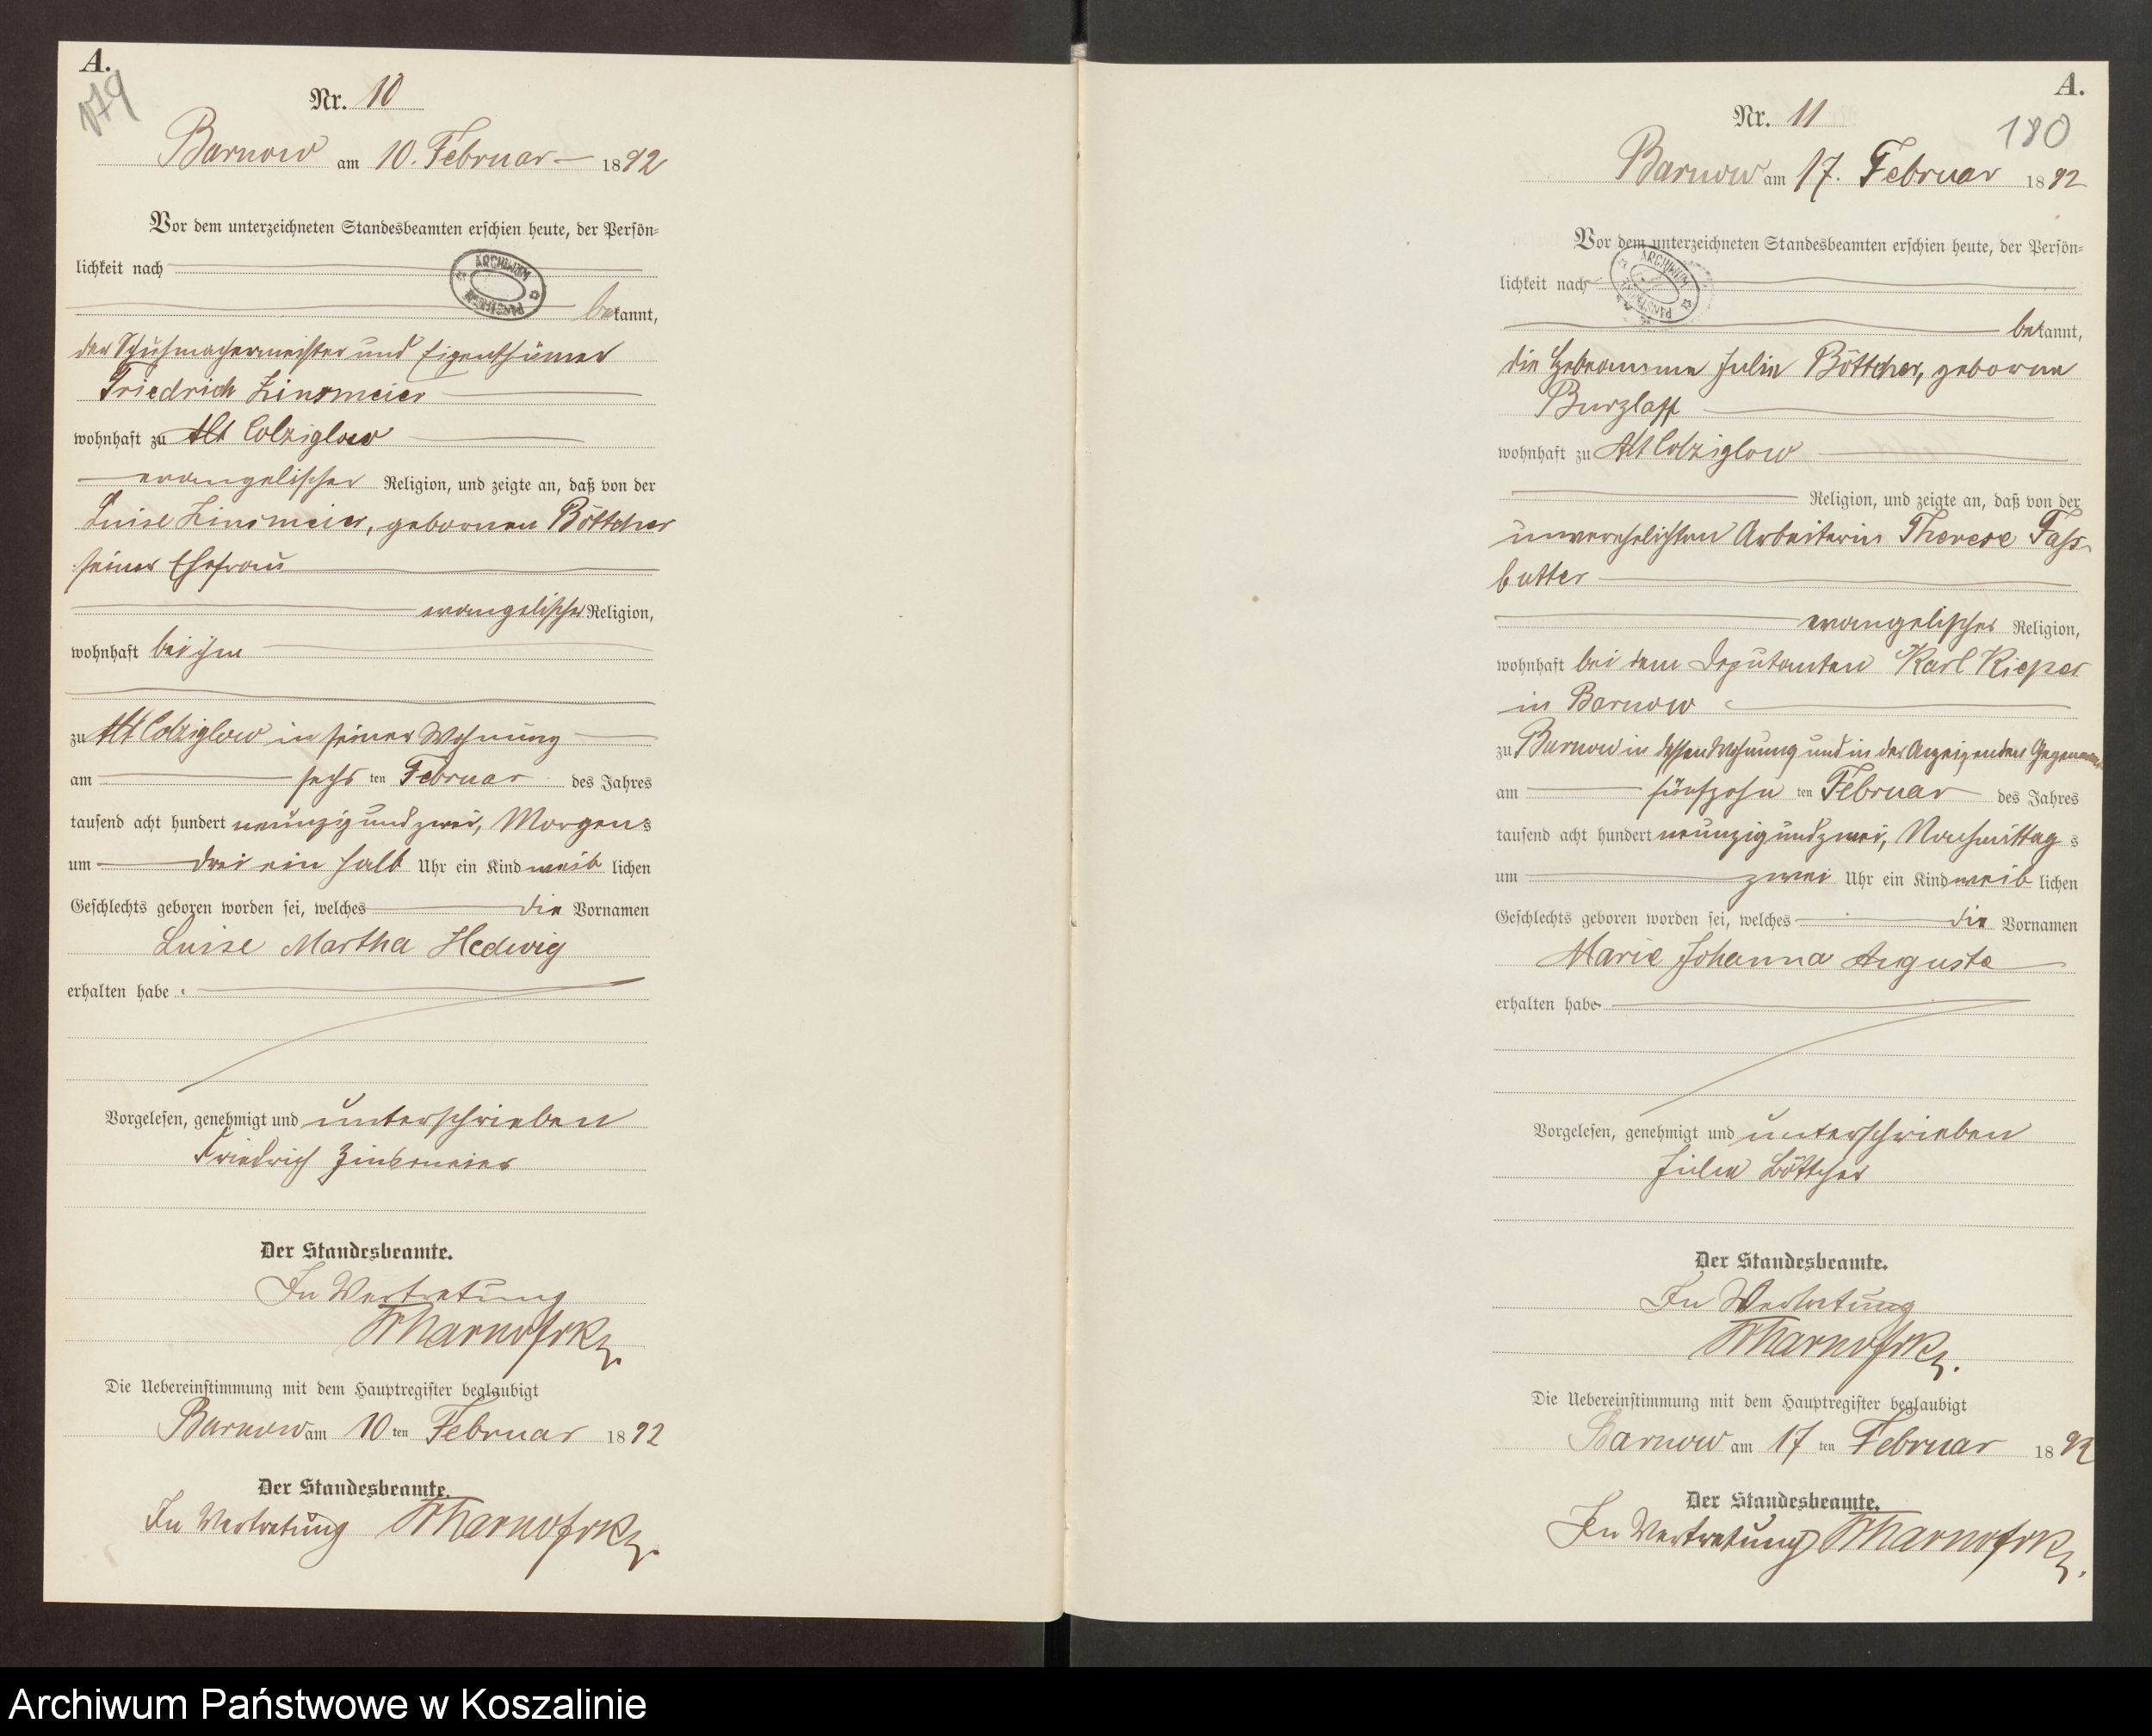 A.
179
Nr. 10
Barnow am 10. Februar 1892
Vor dem unterzeichneten Standesbeamten erschien heute, der Persön-
lichkeit nach
bekannt,
der Schuhmachermeister und Eigenthümer
Friedrich Zinsmeier
wohnhaft zu Alt Colziglow
evangelischer Religion, und zeigte an, daß von der
Luise Zinsmeier, gebornen Böttcher
seiner Ehefrau
evangelischer Religion,
wohnhaft bei ihm
zu Alt Colziglow in seiner Wohnung
am sechs ten Februar des Jahres
tausend acht hundert neunzig und zwei, Morgens
um drei ein halb Uhr ein Kind weib lichen
Geschlechts geboren worden sei, welches die Vornamen
Luise Martha Hedwig
erhalten habe.
Vorgelesen, genehmigt und unterschrieben
Friedrich Zinsmeier
Der Standesbeamte.
In Vertretung
Die Uebereinstimmung mit dem Hauptregister beglaubigt
Barnow am 10 ten Februar 1892
Der Standesbeamte.
In Vertretung
A.
180
Nr. 11
Barnow am 17. Februar 1892
Vor dem unterzeichneten Standesbeamten erschien heute, der Persön-
lichkeit nach
bekannt,
die Hebeamme Julie Böttcher, geborne
Burzlaff
wohnhaft zu Alt Colziglow
Religion, und zeigte an, daß von der
unverehelichten Arbeiterin Therese Fass-
butter
evangelischer Religion,
wohnhaft bei dem Deputanten Karl Rieper
in Barnow
zu Barnow in dessen Wohnung und in der Anzeigenden Gegenwart
am fünfzehn ten Februar des Jahres
tausend acht hundert neunzig und zwei, Nachmittag s
um zwei Uhr ein Kind weib lichen
Geschlechts geboren worden sei, welches die Vornamen
Marie Johanna Auguste
erhalten habe
Vorgelesen, genehmigt und unterschrieben
Julie Böttcher
Der Standesbeamte.
In Vertretung
Die Uebereinstimmung mit dem Hauptregister beglaubigt
Barnow am 17 ten Februar 1892
Der Standesbeamte.
In Vertretung
ARCHIWUM PAŃSTWOWE
Archiwum Państwowe w Koszalinie